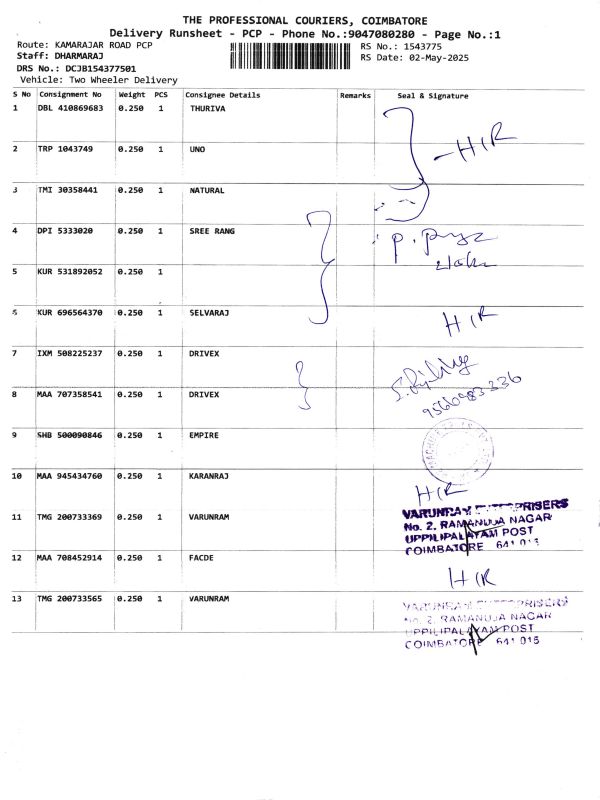 THE PROFESSIONAL COURIERS, COIMBATORE
Delivery Runsheet - PCP - Phone No.:9047080280 - Page No.:1
Route: KAMARAJAR ROAD PCP
RS No.: 1543775
Staff: DHARMARAJ
RS Date: 02-May-2025
DRS No.: DCJB154377501
Vehicle: Two Wheeler Delivery
S No Consignment No Weight PCS Consignee Details Remarks Seal & Signature
1 DBL 410869683 0.250 1 THURIVA
- H/R
2 TRP 1043749 0.250 1 UNO
3 TMI 30358441 0.250 1 NATURAL
4 DPI 5333020 0.250 1 SREE RANG
5 KUR 531892052 0.250 1
6 KUR 696564370 0.250 1 SELVARAJ H/R
7 IXM 508225237 0.250 1 DRIVEX
8 MAA 707358541 0.250 1 DRIVEX 9566983336
9 SHB 500090846 0.250 1 EMPIRE
10 MAA 945434760 0.250 1 KARANRAJ H/R
11 TMG 200733369 0.250 1 VARUNRAM
VARUNRAY ENTERPRISERS
No. 2, RAMANUJA NAGAR
UPPILIPALAYAM POST
COIMBATORE 641 015
12 MAA 708452914 0.250 1 FACDE H/R
13 TMG 200733565 0.250 1 VARUNRAM
VARUNRAY ENTERPRISERS
No. 2, RAMANUJA NAGAR
UPPILIPALAYAM POST
COIMBATORE 641 015